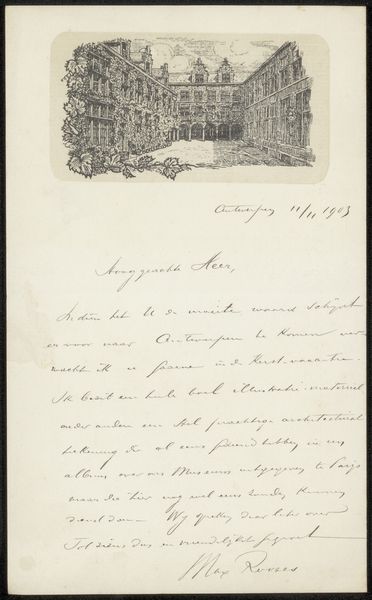 Antwerpen 11/11 1903
Hooggeachte Heer,
Indien het U de moeite waard schijnt
ervoor naar Antwerpen te komen ver-
wacht ik u gaarne in de Kerst-vacantie.
Ik bezit een heele boel illustratie-materieel
onder anderen een stel prachtige architecturale
teekening die al eens gediend hebben in een
album over ons Museum uitgegeven te Parijs
maar die hier nog wel eens zouden kunnen
dienst doen. Wij spreken daar later over
Tot ziens dus en vriendelijkste groet
Max Rooses